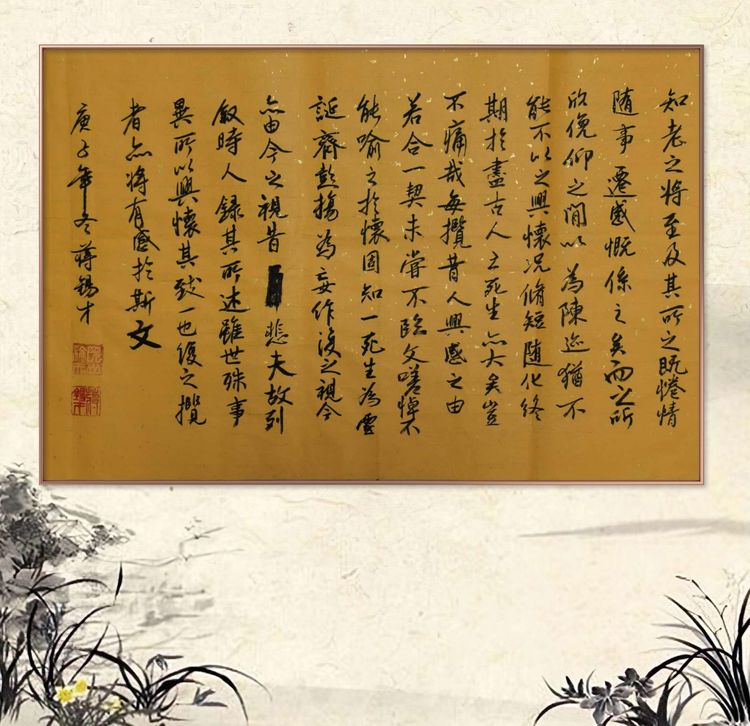 知老之将至及其所之既惓情
随事遷感慨係之矣向之所
欣俛仰之間以為陳迹猶不
能不以之興懷况脩短随化终
期於盡古人云死生亦大矣豈
不痛哉每攬昔人興感之由
若合一契未嘗不臨文嗟悼不
能喻之於懷固知一死生為虚
誕齊彭殤為妄作後之視今
亦由今之視昔悲夫故列
叙時人録其所述雖世殊事
異所以興懷其致一也後之攬
者亦将有感於斯文
庚子年冬蒋锡才